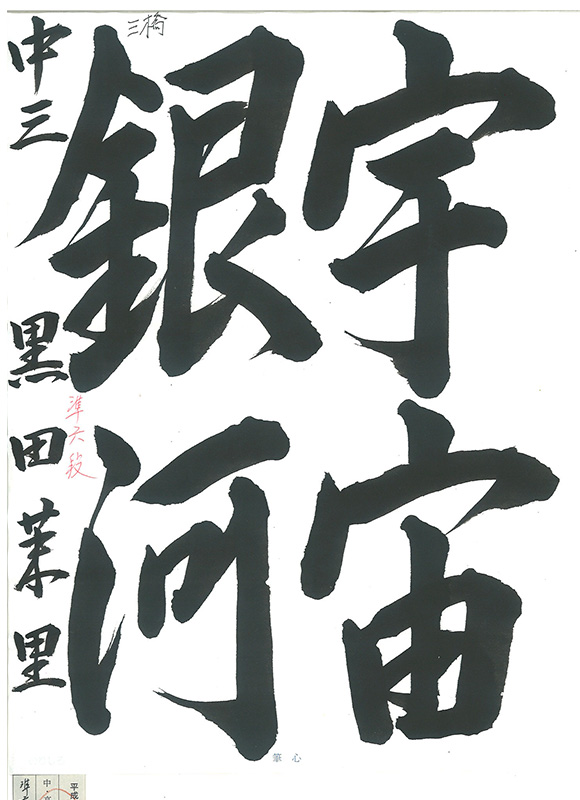 宇宙
銀河
中三 黒田茉里
三橋
準六段
筆心
平成
中・